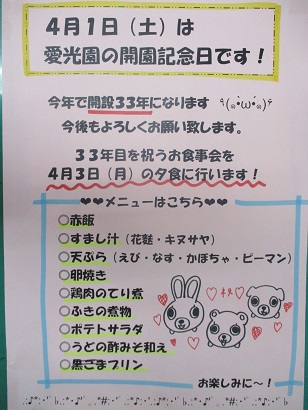 4月1日（土）は
愛光園の開園記念日です！
今年で開設33年になります ٩(๑•̀ω•́๑)۶
今後もよろしくお願い致します。
33年目を祝うお食事会を
4月3日（月）の夕食に行います！
❤❤メニューはこちら❤❤
○赤飯
○すまし汁（花麩・キヌサヤ）
○天ぷら（えび・なす・かぼちゃ・ピーマン）
○卵焼き
○鶏肉のてり煮
○ふきの煮物
○ポテトサラダ
○うどの酢みそ和え
○黒ごまプリン
お楽しみに～！